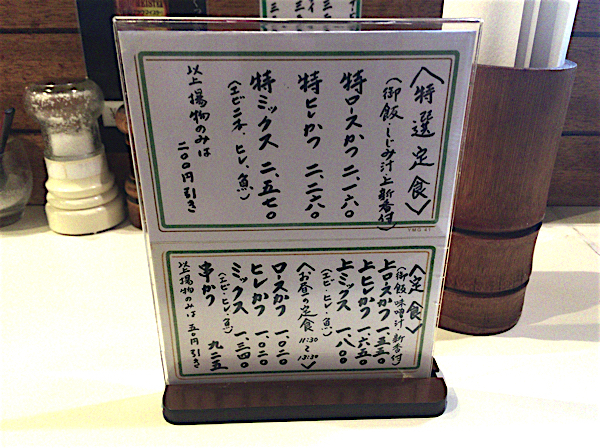 〈特選定食〉
(御飯・しじみ汁・上新香付)
特ロースかつ 二、一六〇
特ヒレかつ 二、二六〇
特ミックス 二、五七〇
(エビ二本、ヒレ、魚)
以上揚物のみは
二〇〇円引き
YMG 41
〈定食〉
(御飯・味噌汁・新香付)
上ロースかつ 一、五五〇
上ヒレかつ 一、六五〇
上ミックス 一、八〇〇
(エビ・ヒレ・魚)
〈お昼の定食 11:30〜13:30〉
ロースかつ 一、〇二〇
ヒレかつ 一、〇二〇
ミックス 一、三四〇
(エビ・ヒレ・魚)
串かつ 九二五
以上揚物のみは 五〇円引き